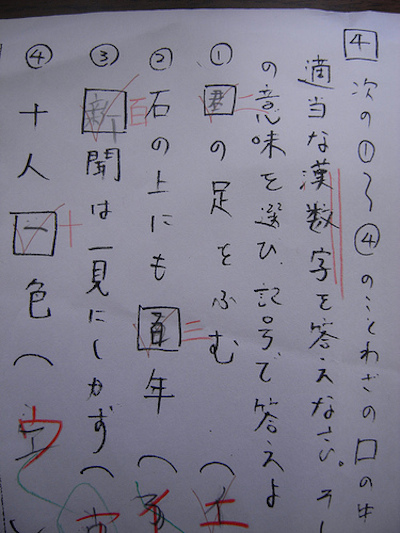 4 次の①〜④のことわざの口の中
適当な漢数字を答えなさい。そし
の意味を選び、記号で答えよ
① 君 二 の足をふむ (エ
② 石の上にも 百 三 年 (
③ 新 百 聞は一見にしかず (ウ
④ 十人 一 十 色 (ウ